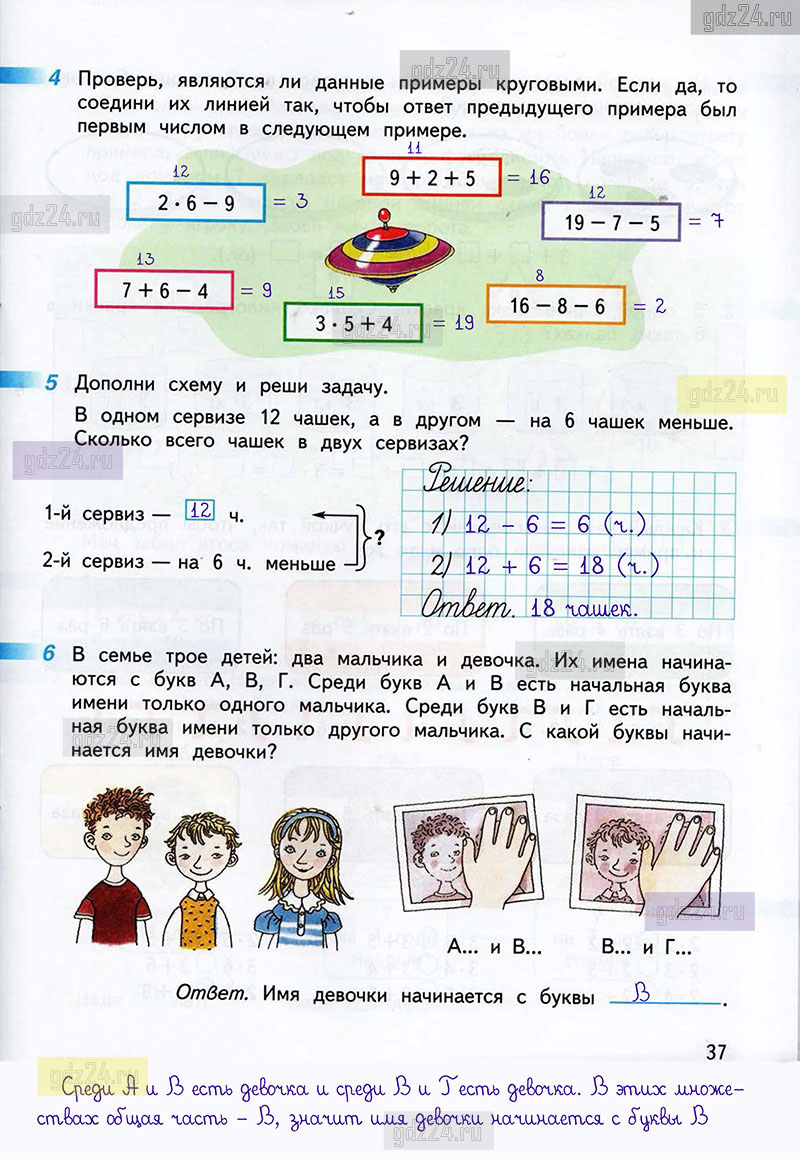 gdz24.ru
gdz24.ru
4 Проверь, являются ли данные примеры круговыми. Если да, то
соедини их линией так, чтобы ответ предыдущего примера был
первым числом в следующем примере.
11
9 + 2 + 5 = 16
12
2 · 6 − 9 = 3
12
19 − 7 − 5 = 7
gdz24.ru
13
7 + 6 − 4 = 9
8
16 − 8 − 6 = 2
15
3 · 5 + 4 = 19
gdz24.ru
5 Дополни схему и реши задачу.
gdz24.ru
В одном сервизе 12 чашек, а в другом — на 6 чашек меньше.
Сколько всего чашек в двух сервизах?
gdz24.ru
1-й сервиз — 12 ч.
2-й сервиз — на 6 ч. меньше
?
Решение:
1) 12 − 6 = 6 (ч.)
2) 12 + 6 = 18 (ч.)
Ответ. 18 чашек.
6 В семье трое детей: два мальчика и девочка. Их имена начина-
ются с букв А, В, Г. Среди букв А и В есть начальная буква
имени только одного мальчика. Среди букв В и Г есть началь-
ная буква имени только другого мальчика. С какой буквы начи-
нается имя девочки?
gdz24.ru
gdz24.ru
gdz24.ru
А... и В... В... и Г...
Ответ. Имя девочки начинается с буквы В.
37
gdz24.ru
Среди А и В есть девочка и среди В и Г есть девочка. В этих множе-
ствах общая часть – В, значит имя девочки начинается с буквы В
gdz24.ru